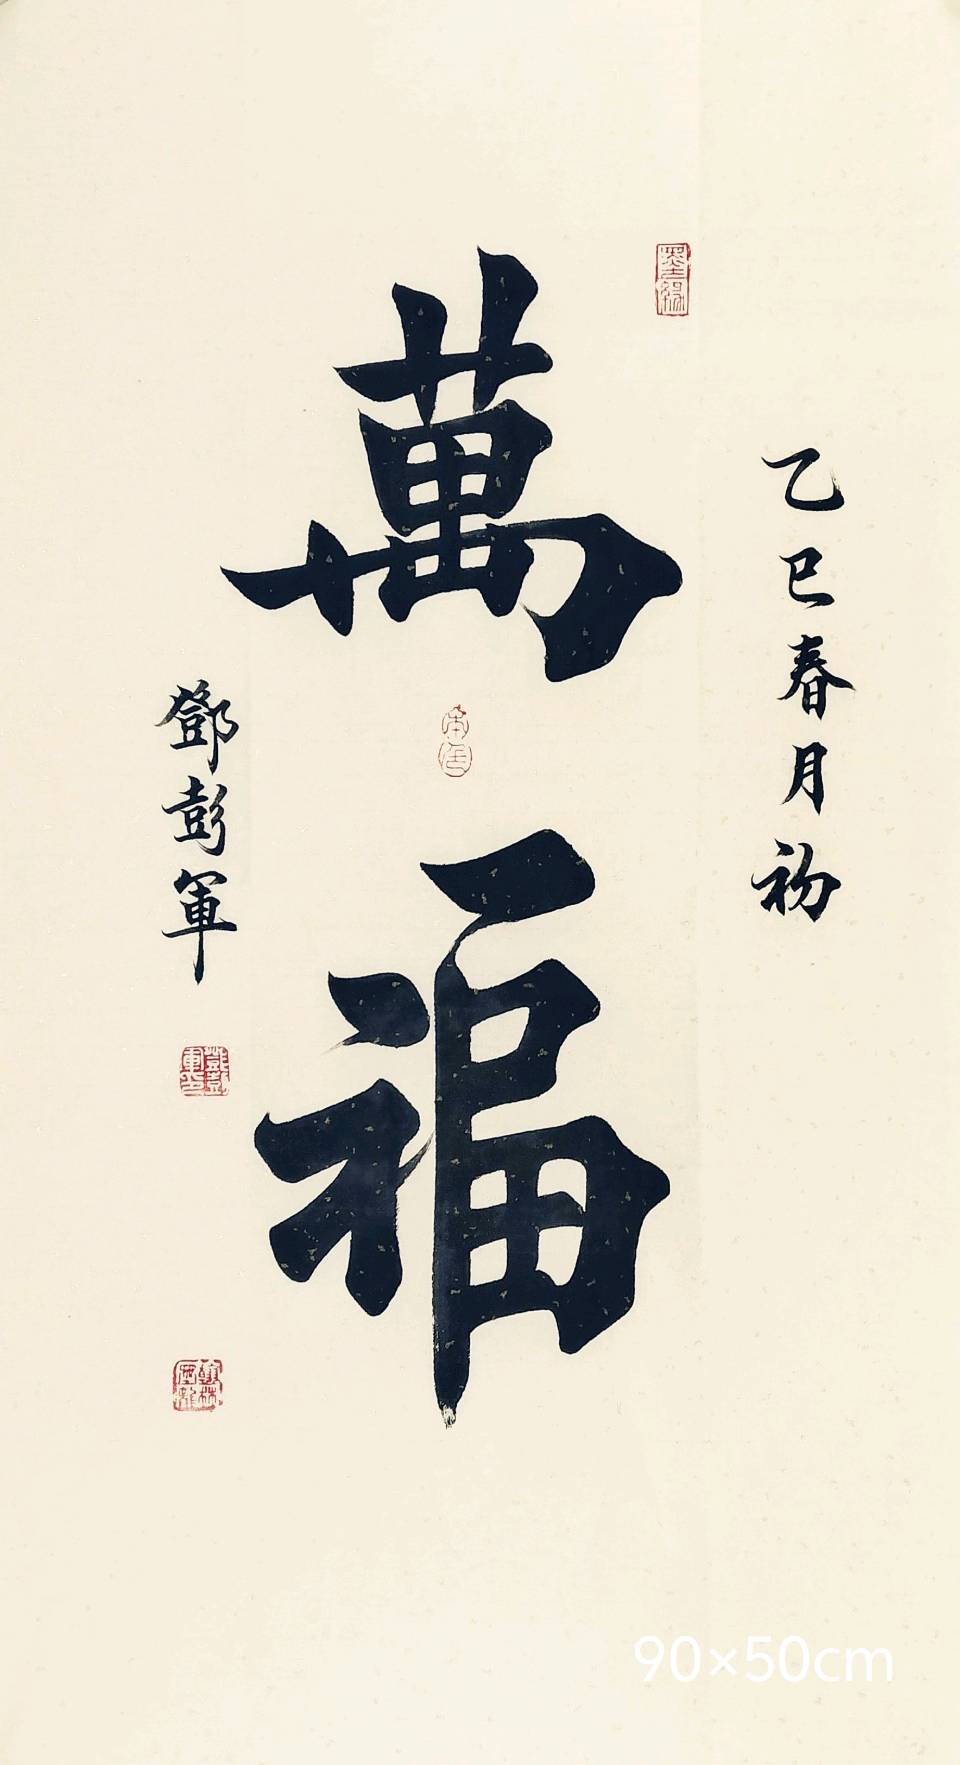 乙巳春月初
萬福
鄧彭軍
墨緣
90×50cm